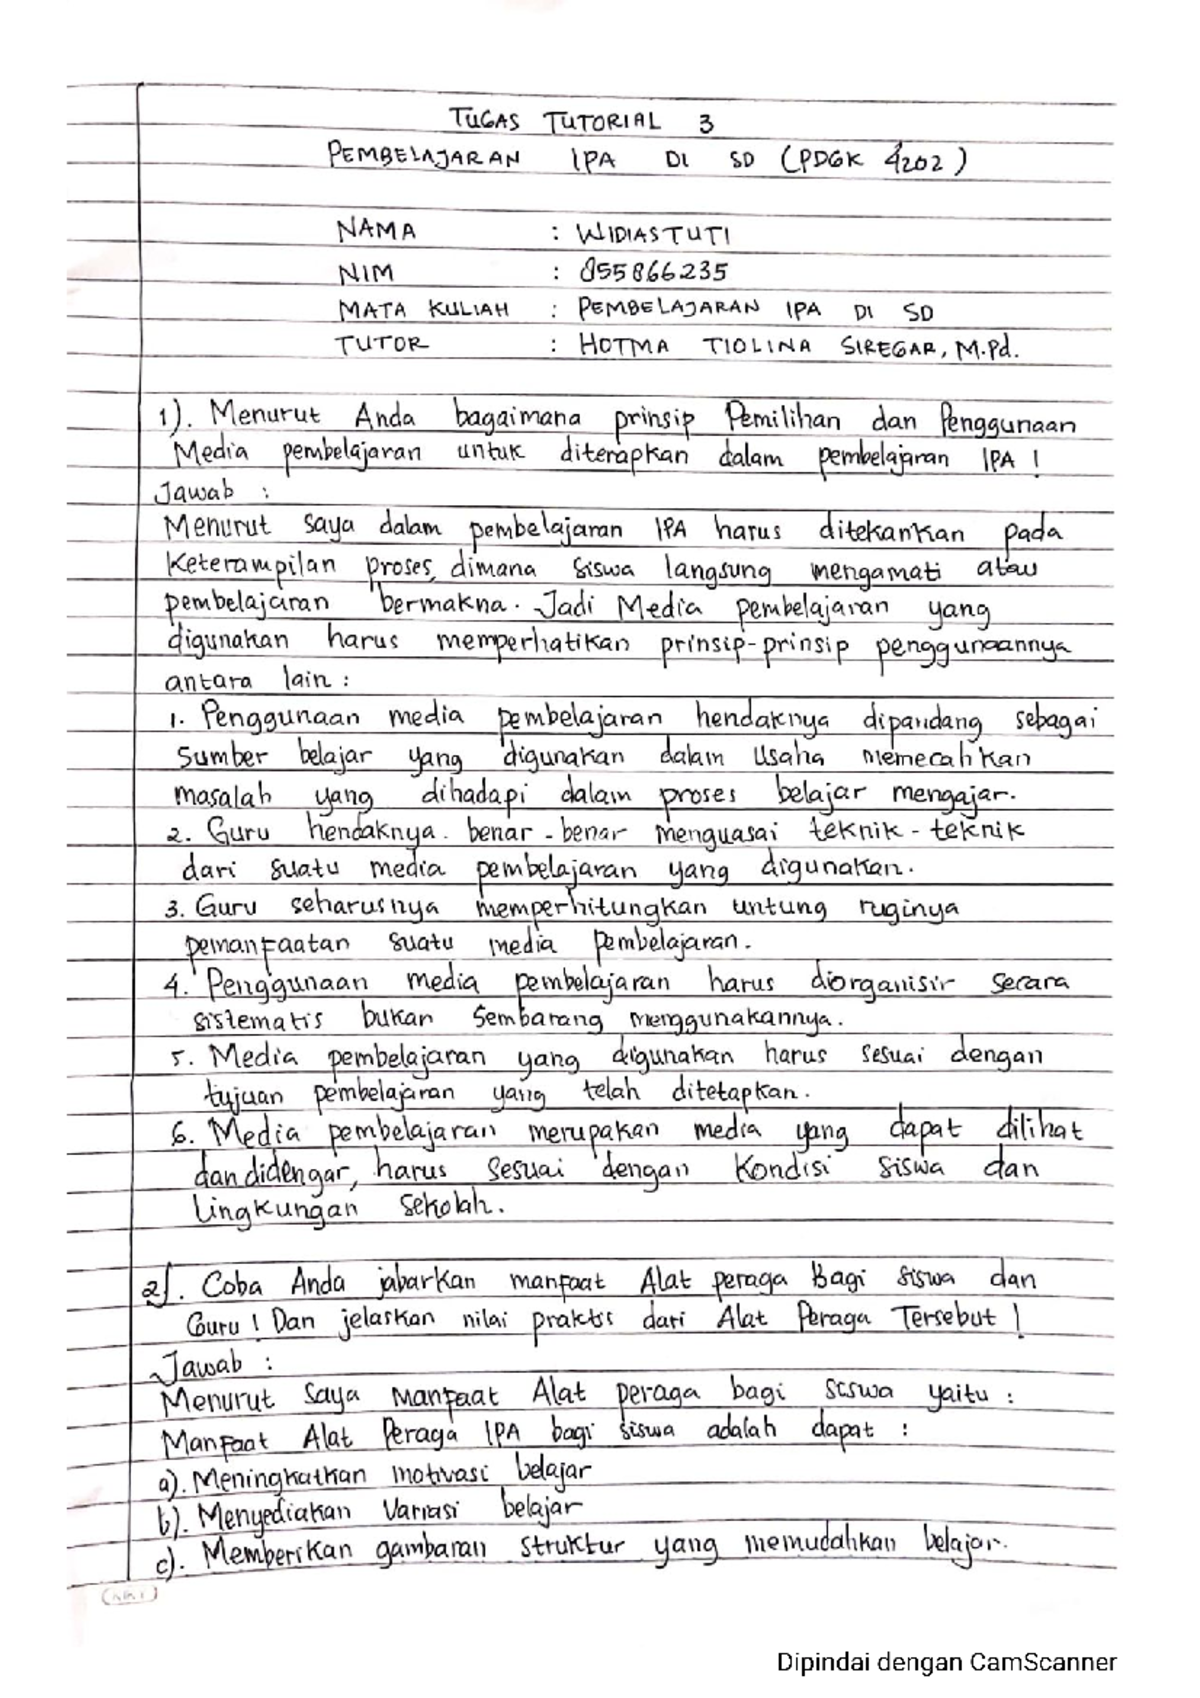 TUGAS TUTORIAL 3
PEMBELAJARAN IPA DI SD (PDGK 4202)
NAMA : WIDIASTUTI
NIM : 855866235
MATA KULIAH : PEMBELAJARAN IPA DI SD
TUTOR : HOTMA TIOLINA SIREGAR, M.Pd.
1). Menurut Anda bagaimana prinsip Pemilihan dan Penggunaan
Media pembelajaran untuk diterapkan dalam pembelajaran IPA !
Jawab :
Menurut saya dalam pembelajaran IPA harus ditekankan pada
Keterampilan proses, dimana siswa langsung mengamati atau
pembelajaran bermakna. Jadi Media pembelajaran yang
digunakan harus memperhatikan prinsip-prinsip penggunaannya
antara lain :
1. Penggunaan media pembelajaran hendaknya dipandang sebagai
Sumber belajar yang digunakan dalam Usaha memecahkan
masalah yang dihadapi dalam proses belajar mengajar.
2. Guru hendaknya benar-benar menguasai teknik-teknik
dari suatu media pembelajaran yang digunakan.
3. Guru seharusnya memperhitungkan untung ruginya
pemanfaatan suatu media pembelajaran.
4. Penggunaan media pembelajaran harus diorganisir secara
sistematis bukan Sembarang menggunakannya.
5. Media pembelajaran yang digunakan harus sesuai dengan
tujuan pembelajaran yang telah ditetapkan.
6. Media pembelajaran merupakan media yang dapat dilihat
dan didengar, harus sesuai dengan Kondisi siswa dan
lingkungan sekolah.
2). Coba Anda jabarkan manfaat Alat peraga Bagi siswa dan
Guru ! Dan jelaskan nilai praktis dari Alat Peraga Tersebut !
Jawab :
Menurut Saya Manfaat Alat peraga bagi siswa yaitu :
Manfaat Alat Peraga IPA bagi siswa adalah dapat :
a). Meningkatkan motivasi belajar
b). Menyediakan Variasi belajar
c). Memberikan gambaran struktur yang memudahkan belajar.
Dipindai dengan CamScanner